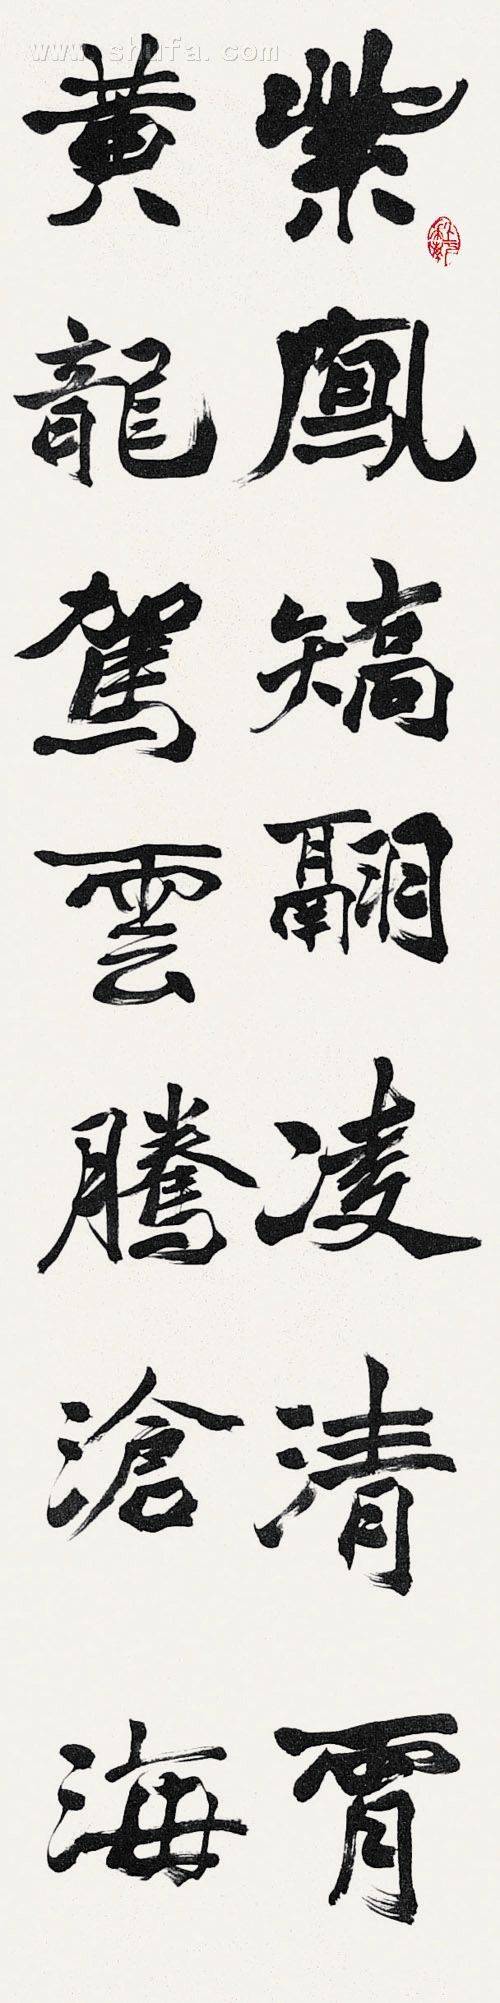 紫鳳矯翮凌清霄
黃龍駕雲騰滄海
www.shufa.com